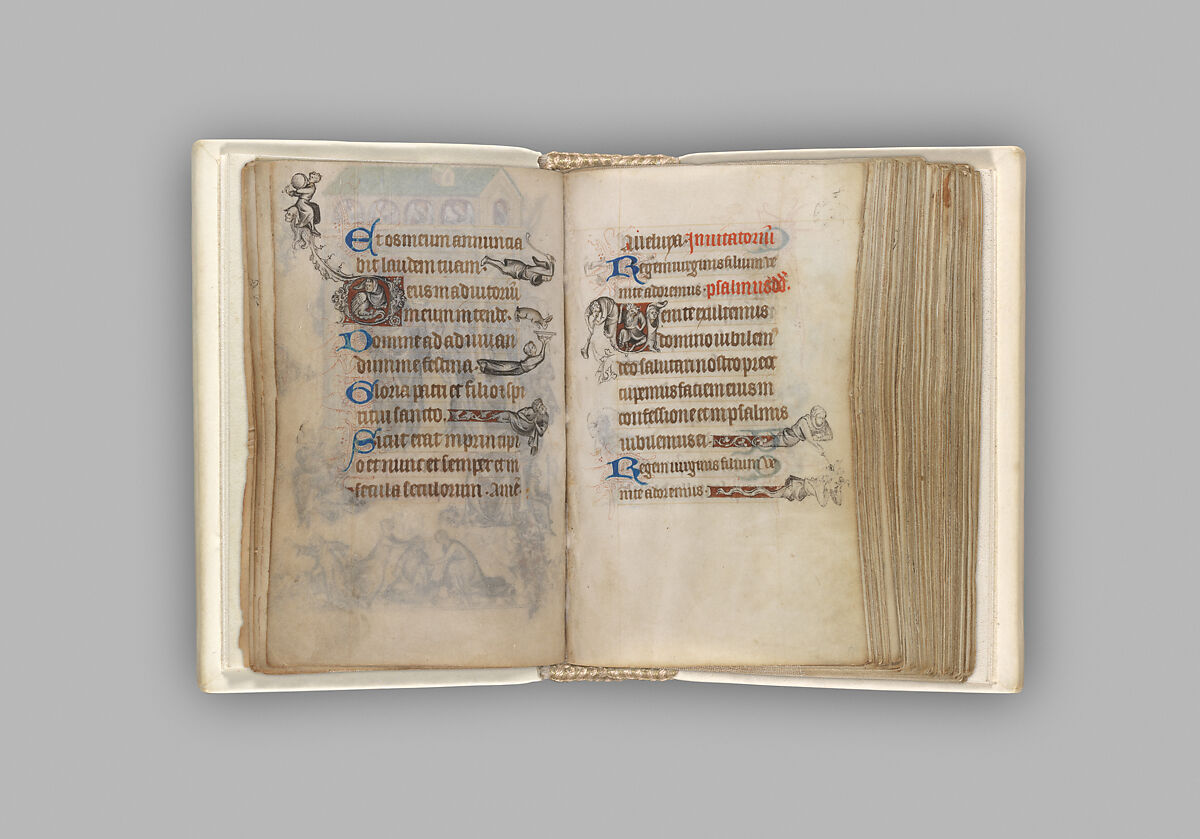 Et os meum annuncia
bit laudem tuam.
Deus in adiutoriū
meum intende.
Domine ad adiuuan
dum me festina.
Gloria patri et filio et spi
ritui sancto.
Sicut erat in principi
o et nunc et semper et in
secula seculorum. Amē.
Alleluya. Inuitatoriū
Regem uirginis filium ve
nite adoremus. psalmus dd.
Uenite exultemus
domino iubilem
deo salutari nostro preoc
cupemus faciem eius in
confessione et in psalmis
iubilemus ei.
Regem uirginis filium ve
nite adoremus.